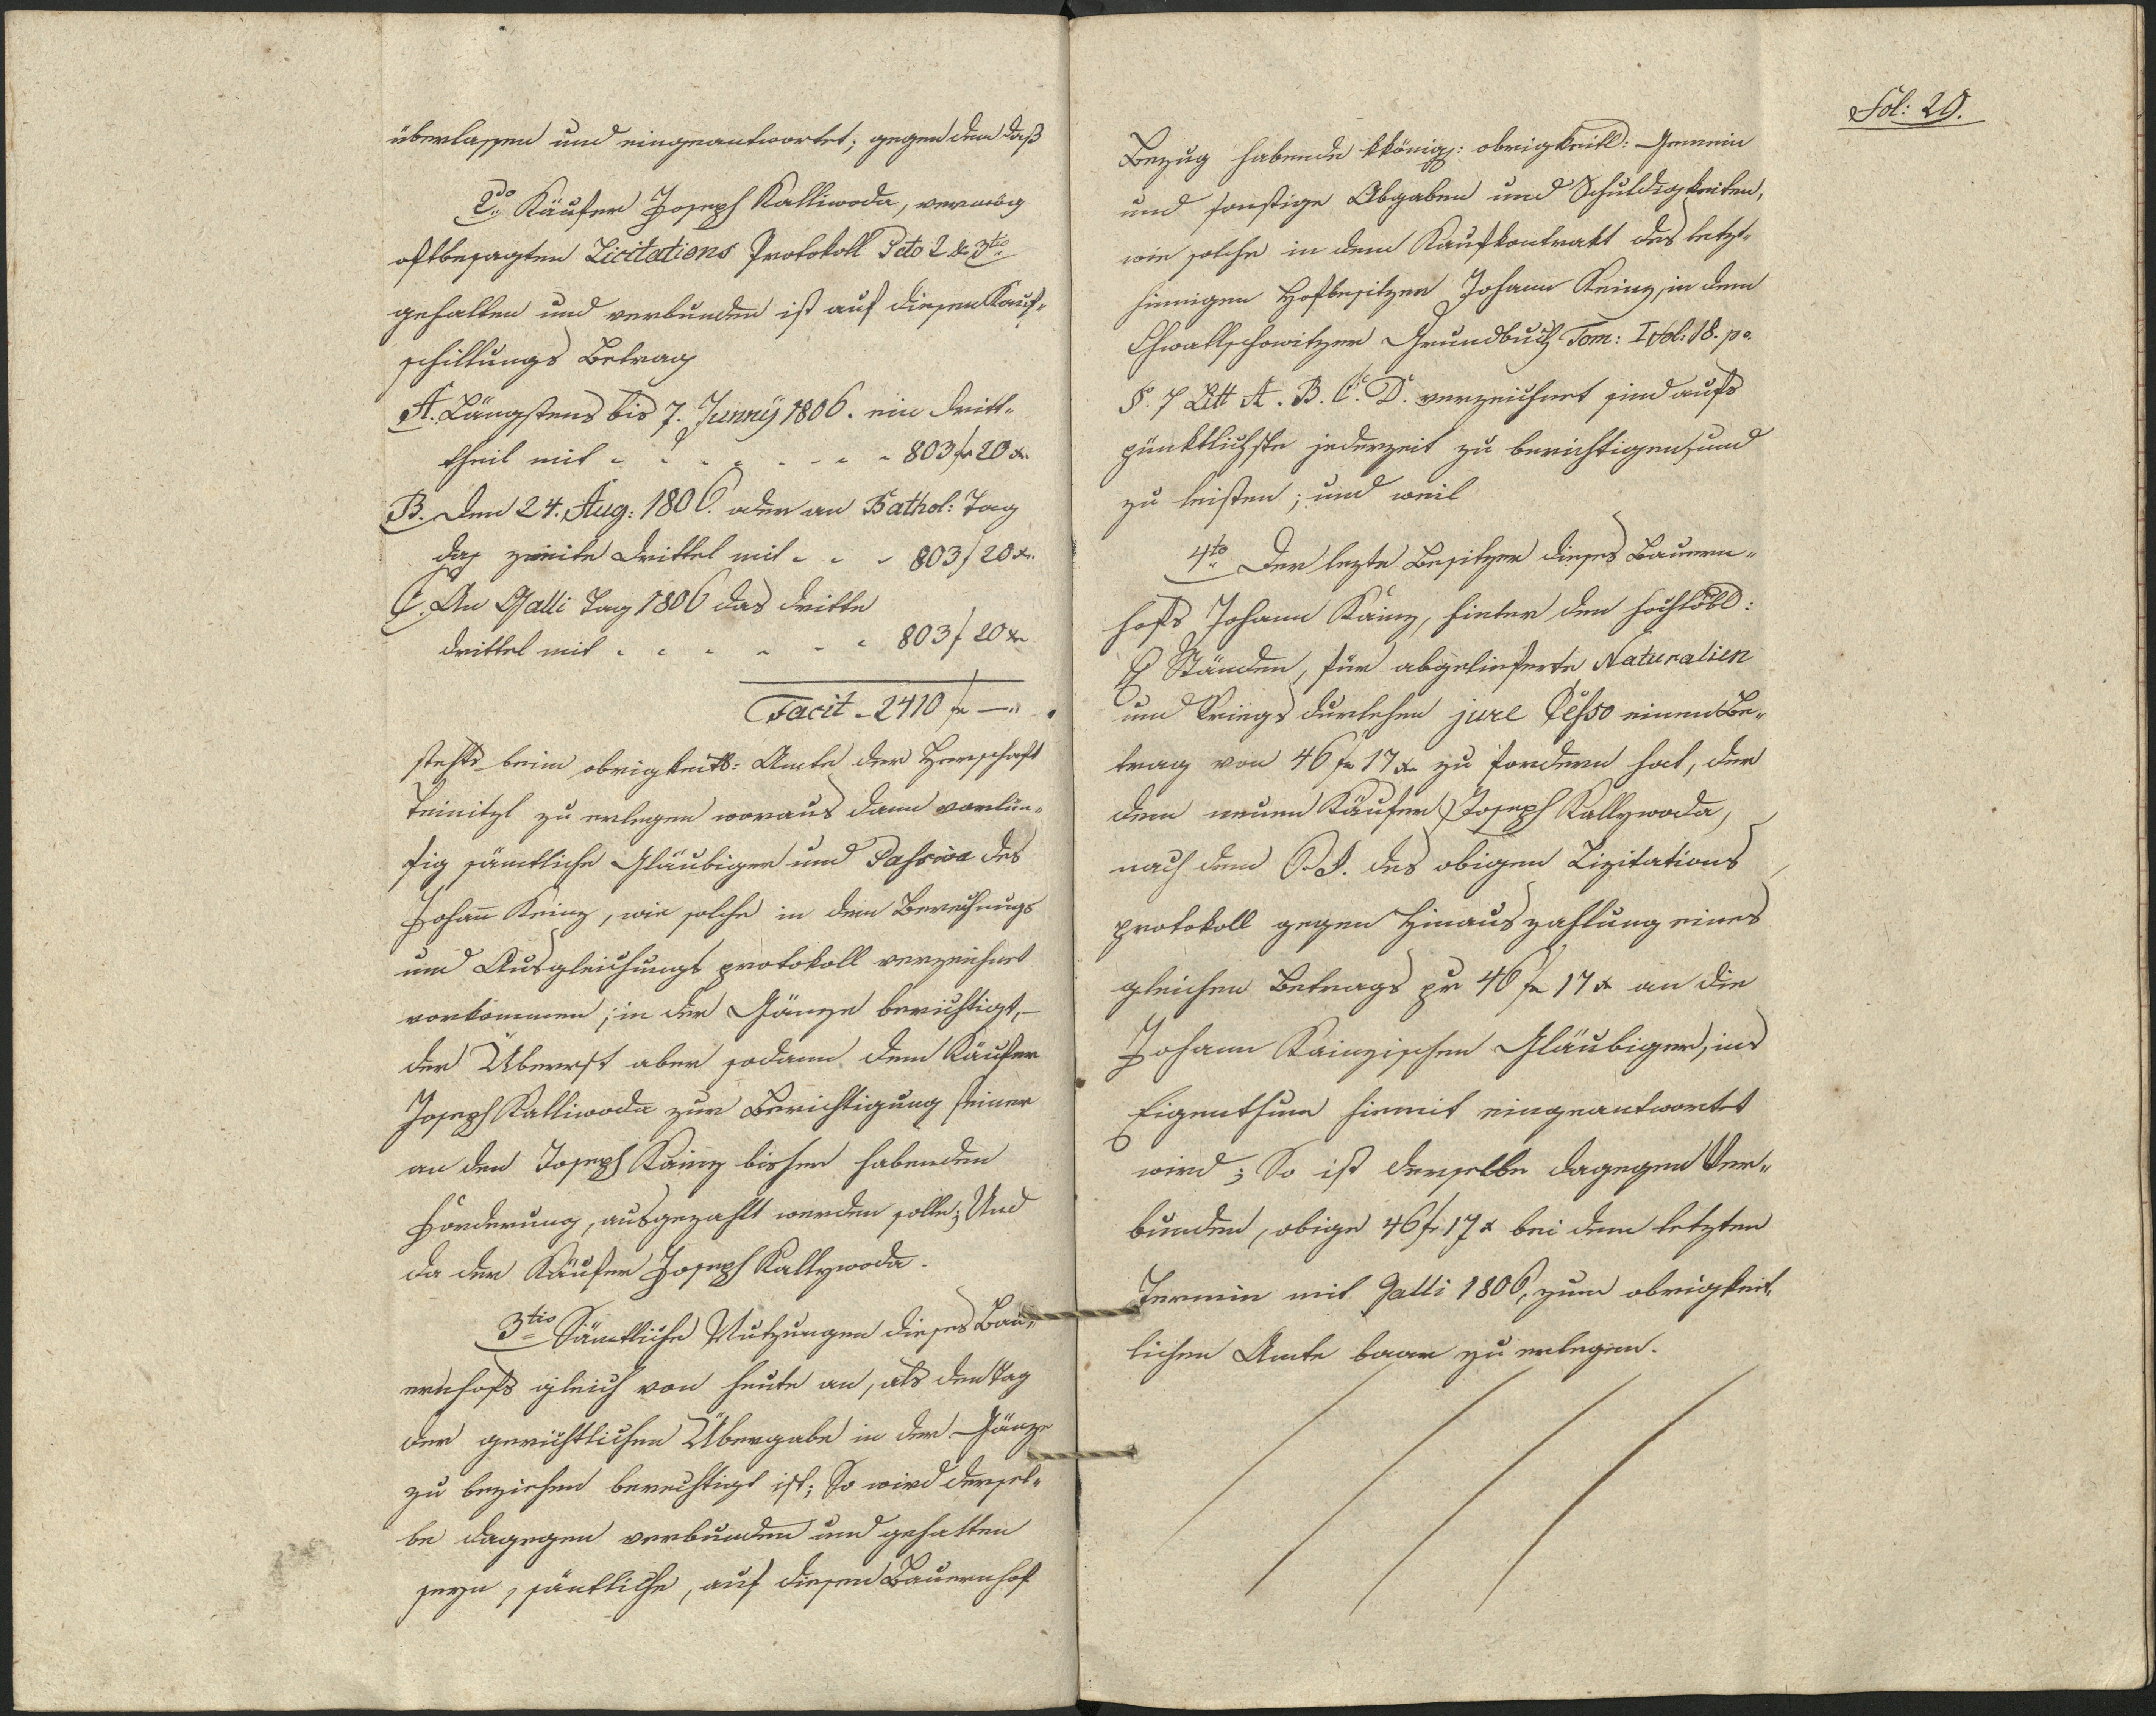 überlassen und eingeantwortet; gegen dem daß
2do Käufer Joseph Kalliwoda, vermög
oftbesagten Licitations Protokoll Pcto 2 & 3tio
gehalten und verbunden ist auf diesen Kauf-
schillungs Betrag
A. Längstens bis 7. Junny 1806. ein Dritt-
theil mit - - - - - - - 803 fr 20 xr.
B. Den 24. Aug: 1806. oder an Bathol: Tag
das zweite Drittel mit - - - 803 f 20 xr.
C. An Galli Tag 1806 das dritte
Drittel mit - - - - - - 803 f 20 xr
Facit - 2410 fr —"
stehts beim obrigkeitl: Amte der Herrschaft
Teinitzl zu erlegen woraus dann vorläu-
fig sämtliche Gläubiger und Passiva des
Johann Keinz, wie solche in dem Berechnungs
und Ausgleichungs protokoll verzeichnet
vorkommen; in der Gänze berichtigt,-
der Überrest aber sodann dem Käufer
Joseph Kalliwoda zur Berichtigung seiner
an den Joseph Kainz bisher habenden
Forderung, ausgezahlt werden solle; Und
da der Käufer Joseph Kallywoda.
3tio Sämtliche Nutzungen dieses Bau-
ernhofs gleich von heute an, als den Tag
der gerichtlichen Übergabe in der Gänze
zu beziehen berechtigt ist; So wird dersel-
be dagegen verbunden und gehalten
seyn, säntliche, auf diesen Bauernhof
Fol: 20.
Bezug habende kkönigl: obrigkeitl: Gemein
und sonstige Abgaben und Schuldigkeiten,
wie solche in dem Kaufkontrakt des letzt-
hinnigen Hofbesitzer Johann Keinz, in dem
Chwallschowitzer Grundbuch Tom: I fol: 18. po.
§. 7 Litt A. B. C. D. verzeichnet sind aufs
pünktlichste jederzeit zu berichtigen, und
zu leisten; und weil
4to Der lezte Besitzer dieses Bauern-
hofs Johann Kainz, hinter den hochlöbl:
H Ständen, für abgelieferte Naturalien
und Kriegs durlehen jure Cesso einen Be-
trag von 46 fr 17 xr zu fordern hat, der
dem neuen Käufer Joseph Kallywoda,
nach dem des obigen Lizitations
protokoll gegen Hinauszahlung eines
gleichen Betrags pr 46 fr 17 x an die
Johann Kainzischen Gläubiger, ins
Eigenthum hiemit eingeantwortet
wird; So ist derselbe dagegen Ver-
bunden, obige 46 fr 17 x bei dem letzten
Termin mit Galli 1806, zum obrigkeit-
lichen Amte baar zu erlegen.